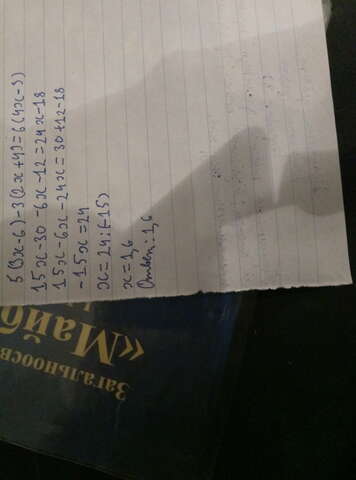 5(3x-6)-3(2x+4)=6(4x-3)
15x-30-6x-12=24x-18
15x-6x-24x=30+12-18
-15x=24
x=24:(-15)
x=1,6
Ответ: 1,6
Загальноосв
«Майб